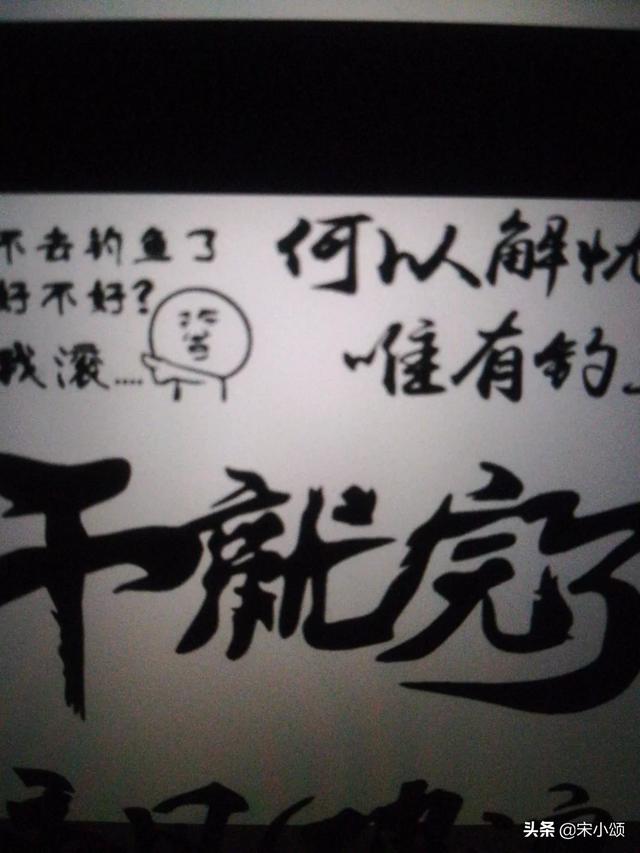 不去钓鱼了
好不好?
我滚....
何以解忧
唯有钓
干就完了
头条 @宋小颂